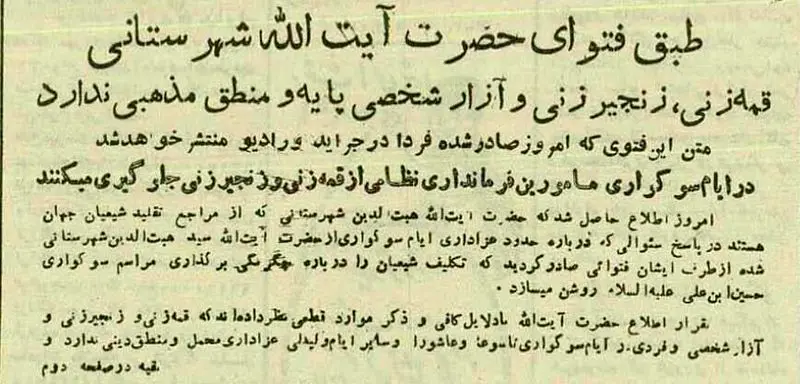 طبق فتوای حضرت آیت الله شهرستانی
قمه‌زنی، زنجیر زنی و آزار شخصی پایه‌ و منطق مذهبی ندارد
متن این فتوی که امروز صادر شده فردا در جراید و رادیو منتشر خواهد شد
در ایام سوگواری مامورین فرمانداری نظامی از قمه‌زنی و زنجیر زنی جلوگیری میکنند
امروز اطلاع حاصل شد که حضرت آیت‌الله هبت‌الدین شهرستانی که از مراجع تقلید شیعیان جهان
هستند در پاسخ سئوالی که درباره حدود عزاداری ایام سوگواری از حضرت آیت‌الله سید هبت‌الدین شهرستانی
شده از طرف ایشان فتوائی صادر گردید که تکلیف شیعیان را درباره چگونگی برگذاری مراسم سوگواری
حسین‌ابن‌علی علیه‌السلام روشن میسازد .
بقرار اطلاع حضرت آیت‌الله با دلایل کافی و ذکر موارد قطعی نظر داده‌اند که قمه‌زنی و زنجیر زنی و
آزار شخصی و فردی در ایام سوگواری تاسوعا و عاشورا و سایر ایام ولیالی عزاداری محمل و منطق دینی ندارد و
بقیه در صفحه دوم